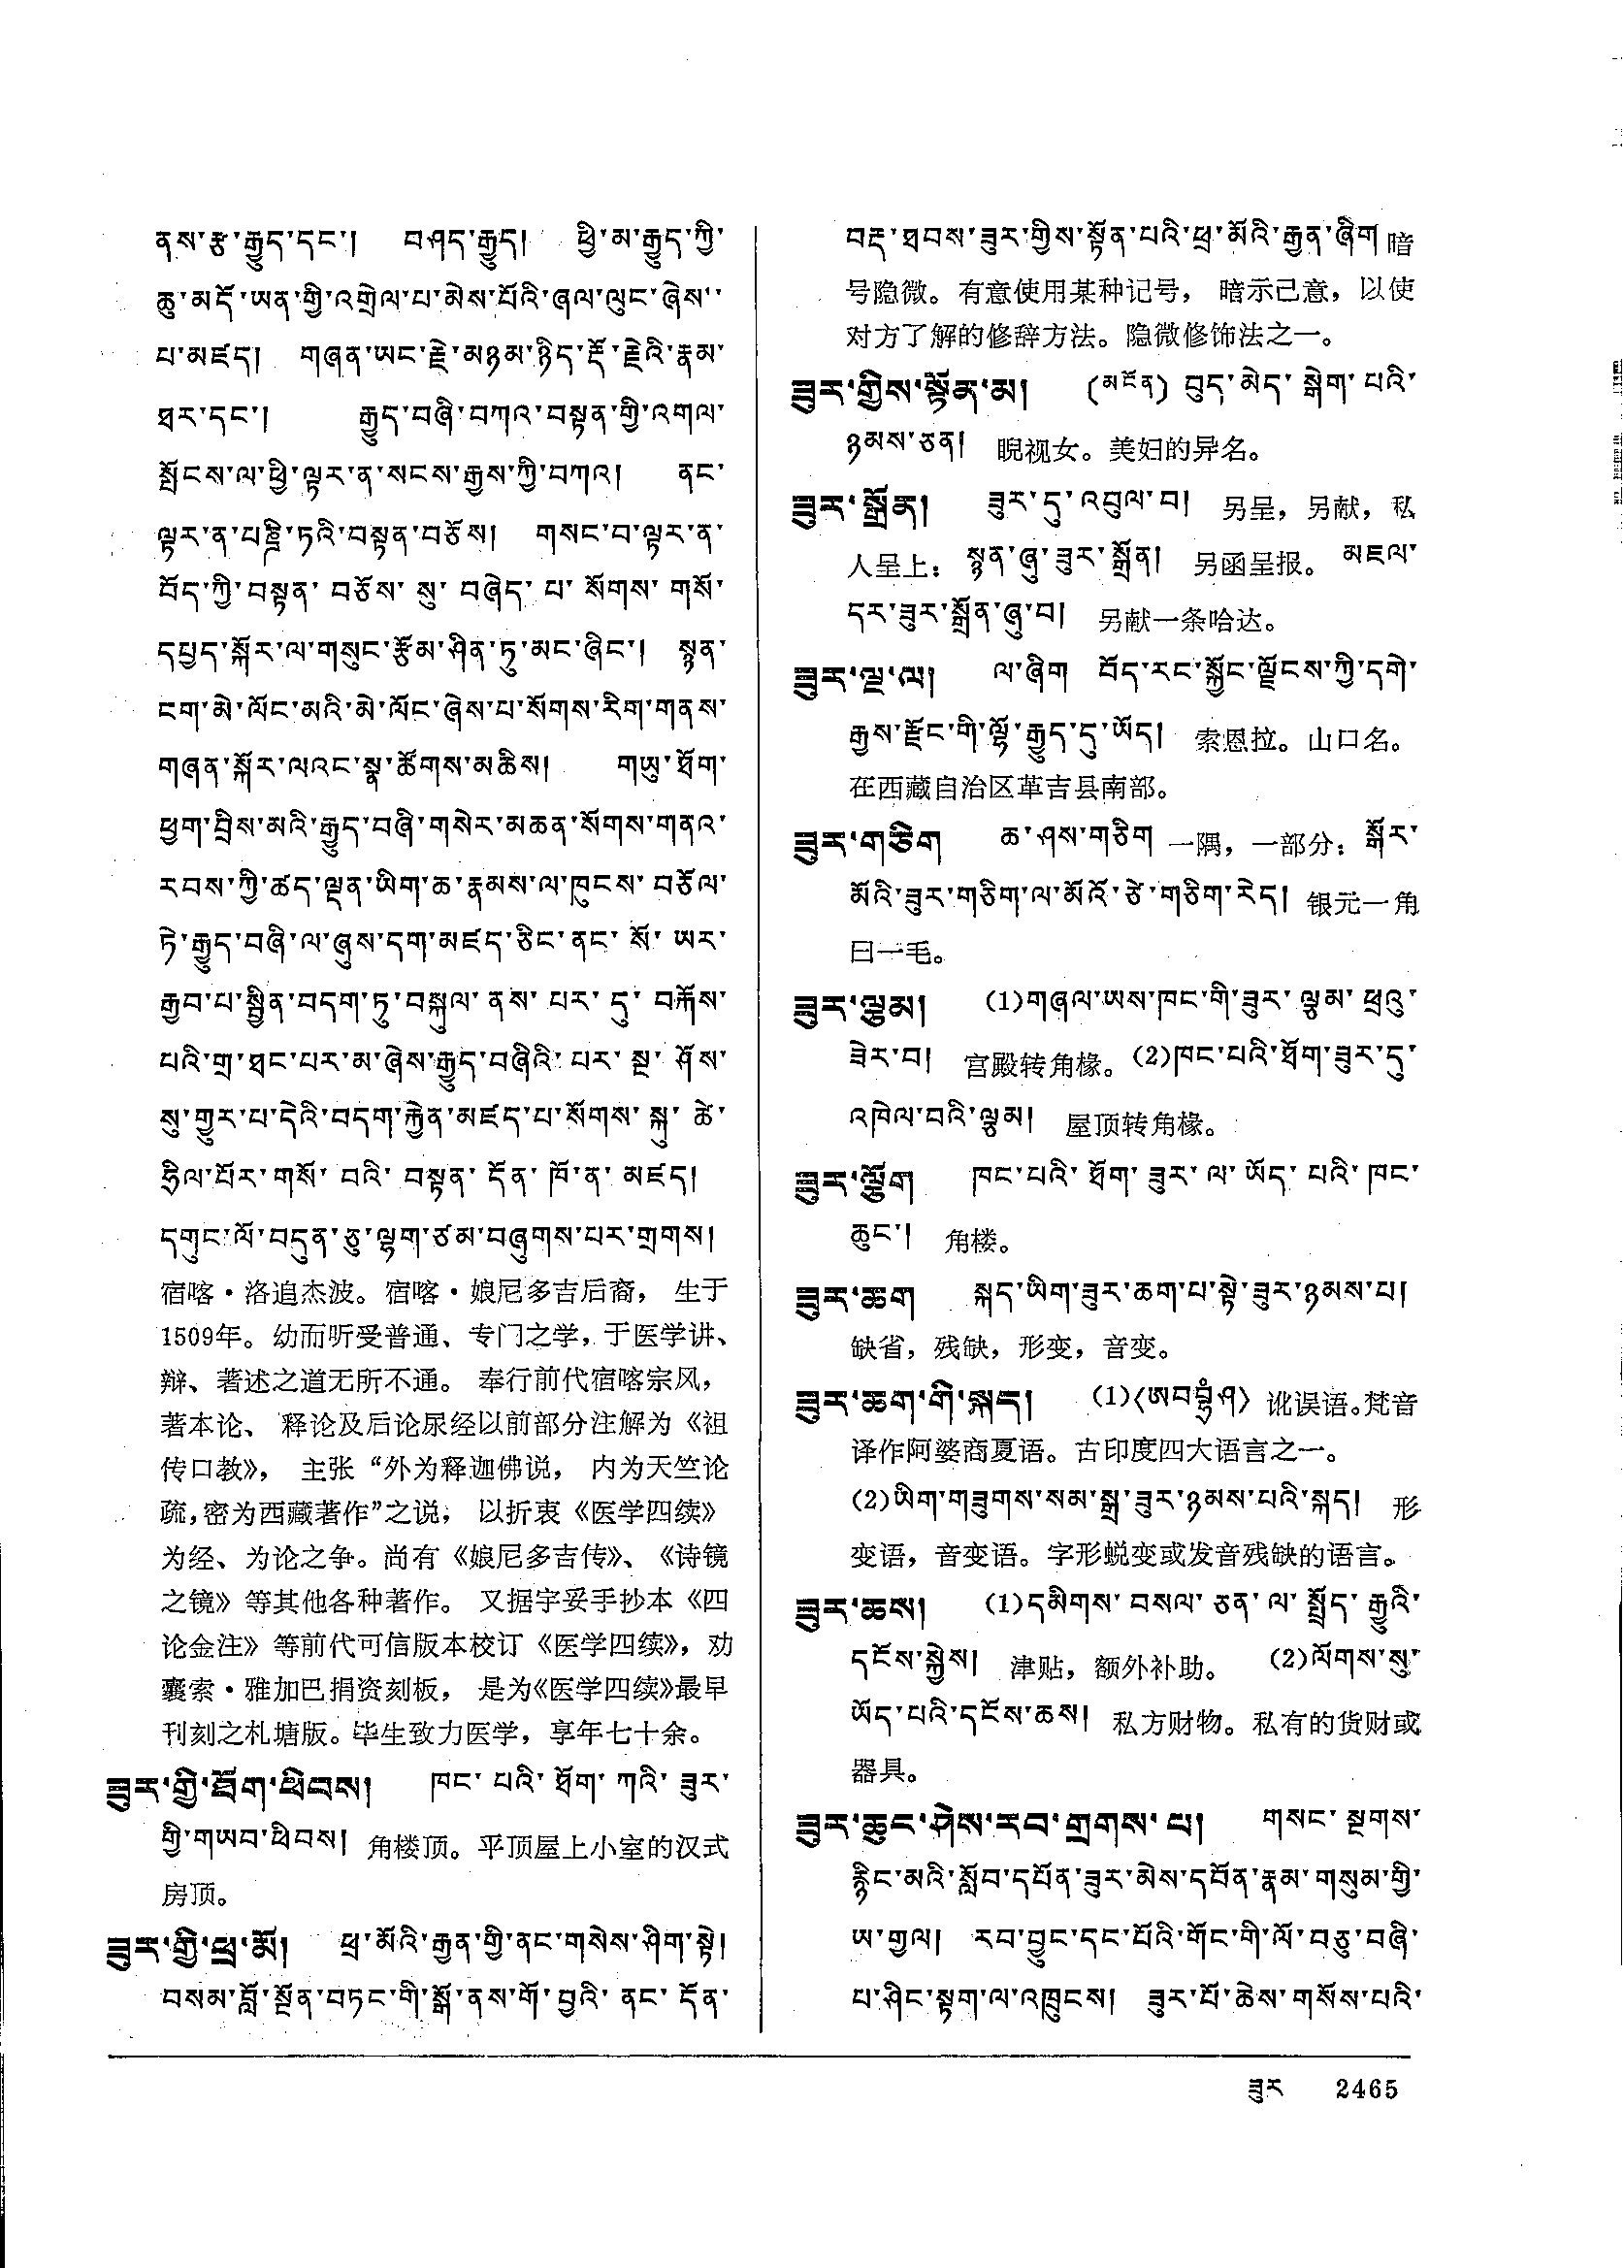 ནས་རྩ་རྒྱུད་དང་། བཤད་རྒྱུད། ཕྱི་མ་རྒྱུད་ཀྱི་
ཆུ་མདོ་ཡན་གྱི་འགྲེལ་པ་མེས་པོའི་ཞལ་ལུང་ཞེས་
པ་མཛད། གཞན་ཡང་རྗེ་མཉམ་ཉིད་རྡོ་རྗེའི་རྣམ་
ཐར་དང་། རྒྱུད་བཞི་བཀའ་བསྟན་གྱི་འགལ་
སྤོངས་ལ་ཕྱི་ལྟར་ན་སངས་རྒྱས་ཀྱི་བཀའ། ནང་
ལྟར་ན་པཎྜི་ཏའི་བསྟན་བཅོས། གསང་བ་ལྟར་ན་
བོད་ཀྱི་བསྟན་བཅོས་སུ་བཞེད་པ་སོགས་གསོ་
དཔྱད་སྐོར་ལ་གསུང་རྩོམ་ཤིན་ཏུ་མང་ཞིང་། སྙན་
ངག་མེ་ལོང་མའི་མེ་ལོང་ཞེས་པ་སོགས་རིག་གནས་
གཞན་སྐོར་ལའང་སྣ་ཚོགས་མཆིས། གཡུ་ཐོག་
ཕྱག་བྲིས་མའི་རྒྱུད་བཞི་གསེར་མཆན་སོགས་གནའ་
རབས་ཀྱི་ཚད་ལྡན་ཡིག་ཆ་རྣམས་ལ་ཁུངས་བཅོལ་
ཏེ་རྒྱུད་བཞི་ལ་ཞུས་དག་མཛད་ཅིང་ནང་སོ་ཡར་
རྒྱབ་པ་སྦྱིན་བདག་ཏུ་བསྐུལ་ནས་པར་དུ་བརྐོས་
པའི་གྲ་ཐང་པར་མ་ཞེས་རྒྱུད་བཞིའི་པར་སྔ་ཤོས་
སུ་གྱུར་པ་དེའི་བདག་རྐྱེན་མཛད་པ་སོགས་སྐུ་ཚེ་
ཧྲིལ་པོར་གསོ་བའི་བསྟན་དོན་ཁོ་ན་མཛད།
དགུང་ལོ་བདུན་ཅུ་ལྷག་ཙམ་བཞུགས་པར་གྲགས།
宿喀·洛追杰波。宿喀·娘尼多吉后裔， 生于
1509年。幼而听受普通、专门之学，于医学讲、
辩、著述之道无所不通。 奉行前代宿喀宗风，
著本论、 释论及后论尿经以前部分注解为《祖
传口教》， 主张“外为释迦佛说， 内为天竺论
疏，密为西藏著作”之说， 以折衷《医学四续》
为经、为论之争。尚有《娘尼多吉传》、《诗镜
之镜》等其他各种著作。 又据宇妥手抄本《四
论金注》等前代可信版本校订《医学四续》，劝
襄索·雅加巴捐资刻板， 是为《医学四续》最早
刊刻之札塘版。毕生致力医学，享年七十余。
ཟུར་གྱི་ཐོག་ཕིབས། ཁང་པའི་ཐོག་ཀའི་ཟུར་
གྱི་གཡབ་ཕིབས། 角楼顶。平顶屋上小室的汉式
房顶。
ཟུར་གྱི་ཕྲ་མོ། ཕྲ་མོའི་རྒྱན་གྱི་ནང་གསེས་ཤིག་སྟེ།
བསམ་བློ་སྔོན་བཏང་གི་སྒོ་ནས་གོ་བྱའི་ནང་དོན་
བརྡ་ཐབས་ཟུར་གྱིས་སྟོན་པའི་ཕྲ་མོའི་རྒྱན་ཞིག 暗
号隐微。有意使用某种记号， 暗示己意，以使
对方了解的修辞方法。隐微修饰法之一。
ཟུར་གྱིས་སྟོན་མ། (མངོན) བུད་མེད་སྒེག་པའི་
ཉམས་ཅན། 睨视女。美妇的异名。
ཟུར་སྒྲོན། ཟུར་དུ་འབུལ་བ། 另呈，另献，私
人呈上： སྙན་ཞུ་ཟུར་སྒྲོན། 另函呈报。 མཇལ་
དར་ཟུར་སྒྲོན་ཞུ་བ། 另献一条哈达。
ཟུར་ལྔ་ལ། ལ་ཞིག བོད་རང་སྐྱོང་ལྗོངས་ཀྱི་དགེ་
རྒྱས་རྫོང་གི་ལྷོ་རྒྱུད་དུ་ཡོད། 索恩拉。山口名。
在西藏自治区革吉县南部。
ཟུར་གཅིག ཆ་ཤས་གཅིག 一隅，一部分； སྒོར་
མོའི་ཟུར་གཅིག་ལ་མོའོ་ཙེ་གཅིག་རེད། 银元一角
曰一毛。
ཟུར་ལྕམ། (1)གཞལ་ཡས་ཁང་གི་ཟུར་ལྕམ་ཕྲའུ་
ཟེར་བ། 宫殿转角椽。(2)ཁང་པའི་ཐོག་ཟུར་དུ་
འཁེལ་བའི་ལྕམ། 屋顶转角椽。
ཟུར་ལྕོག ཁང་པའི་ཐོག་ཟུར་ལ་ཡོད་པའི་ཁང་
ཆུང་། 角楼。
ཟུར་ཆག སྐད་ཡིག་ཟུར་ཆག་པ་སྟེ་ཟུར་ཉམས་པ།
缺省，残缺，形变，音变。
ཟུར་ཆག་གི་སྐད། (1)〈ཨབབྷྲཾཤ〉讹误语。梵音
译作阿婆商夏语。古印度四大语言之一。
(2)ཡིག་གཟུགས་སམ་སྒྲ་ཟུར་ཉམས་པའི་སྐད། 形
变语，音变语。字形蜕变或发音残缺的语言。
ཟུར་ཆས། (1)དམིགས་བསལ་ཅན་ལ་སྤྲོད་རྒྱུའི་
དངོས་སྐྱེས། 津贴，额外补助。 (2)ལོགས་སུ་
ཡོད་པའི་དངོས་ཆས། 私方财物。私有的货财或
器具。
ཟུར་ཆུང་ཤེས་རབ་གྲགས་པ། གསང་སྔགས་
རྙིང་མའི་སློབ་དཔོན་ཟུར་མེས་དབོན་རྣམ་གསུམ་གྱི་
ཡ་གྱལ། རབ་བྱུང་དང་པོའི་གོང་གི་ལོ་བཅུ་བཞི་
པ་ཤིང་སྟག་ལ་འཁྲུངས། ཟུར་པོ་ཆེས་གསོས་པའི་
ཟུར 2465